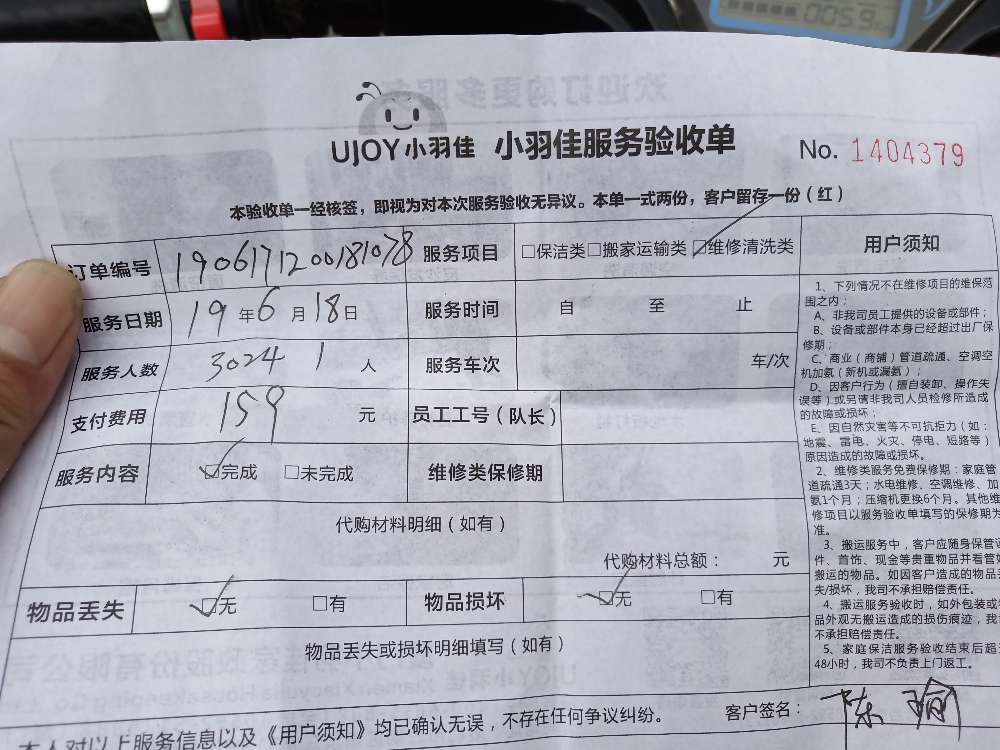 UJOY小羽佳 小羽佳服务验收单 No. 1404379
本验收单一经核签，即视为对本次服务验收无异议。本单一式两份，客户留存一份（红）
订单编号 1906171200181078 服务项目 □保洁类□搬家运输类☑维修清洗类
服务日期 19 年 6 月 18 日 服务时间 自 至 止
服务人数 3024 1 人 服务车次 车/次
支付费用 159 元 员工工号（队长）
服务内容 ☑完成 □未完成 维修类保修期
代购材料明细（如有）
代购材料总额： 元
物品丢失 ☑无 □有 物品损坏 ☑无 □有
物品丢失或损坏明细填写（如有）
本人对以上服务信息以及《用户须知》均已确认无误，不存在任何争议纠纷。 客户签名： 陈瑜
用户须知
1、下列情况不在维修项目的维保范
围之内：
A、非我司员工提供的设备或部件；
B、设备或部件本身已经超过出厂保
修期；
C、商业（商铺）管道疏通、空调空
机加氨（新机或漏氨）；
D、因客户行为（擅自装卸、操作失
误等）或另请非我司人员检修所造成
的故障或损坏；
E、因自然灾害等不可抗拒力（如：
地震、雷电、火灾、停电、短路等）
原因造成的故障或损坏。
2、维修类服务免费保修期：家庭管
道疏通3天；水电维修、空调维修、加
氨1个月；压缩机更换6个月。其他维
修项目以服务验收单填写的保修期为
准。
3、搬运服务中，客户应随身保管证
件、首饰、现金等贵重物品并看管好
搬运的物品。如因客户造成的物品丢
失/损坏，我司不承担赔偿责任。
4、搬运服务验收时，如外包装或
品外观无搬运造成的损伤痕迹，我
不承担赔偿责任。
5、家庭保洁服务验收结束后超
48小时，我司不负责上门返工。